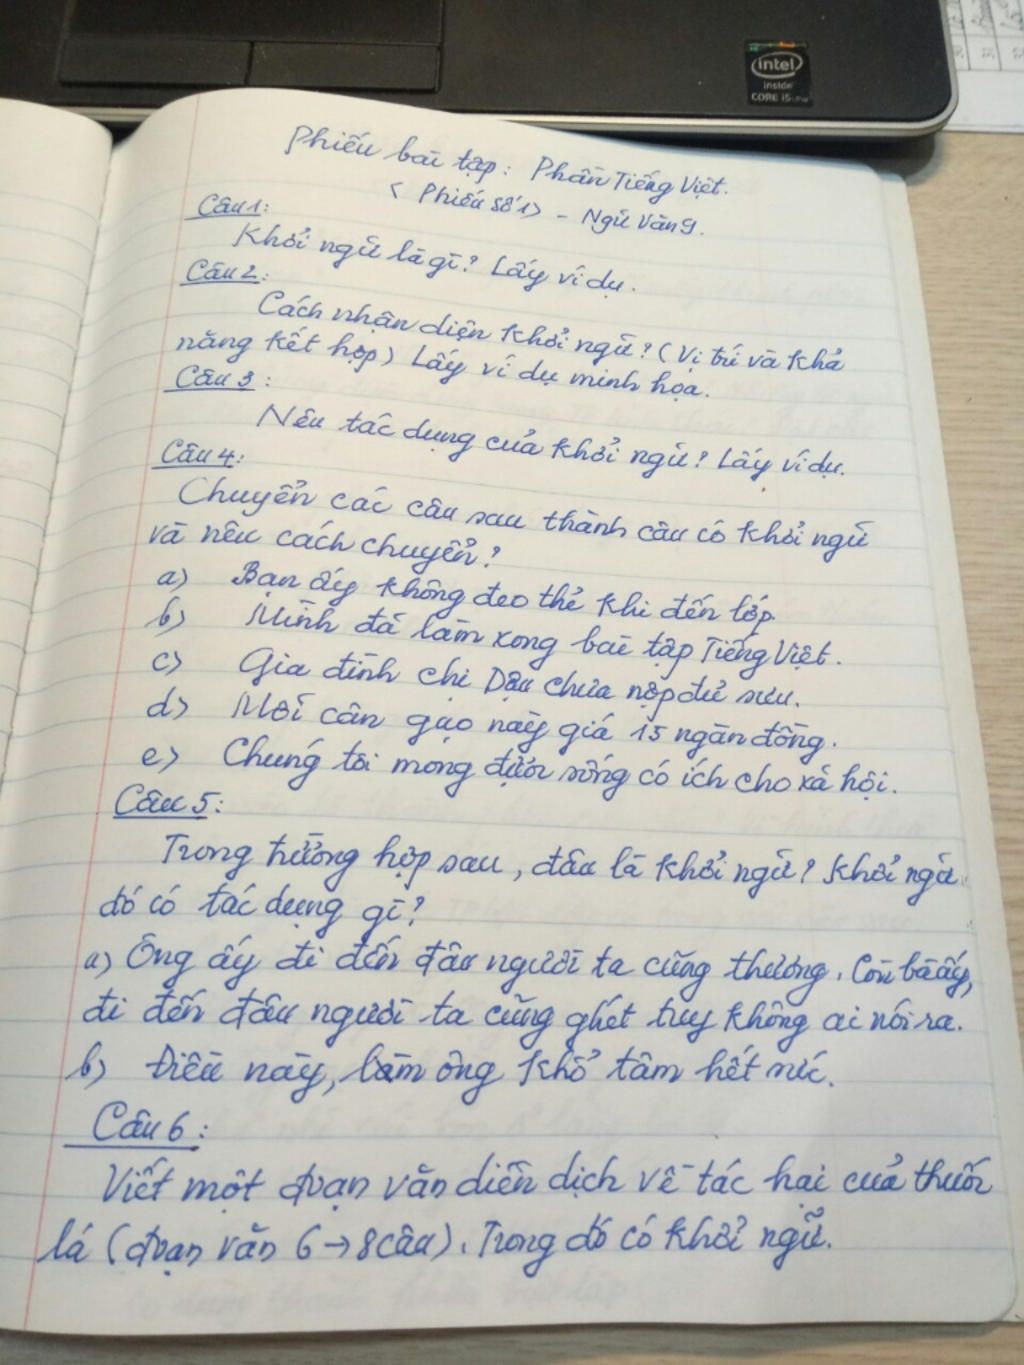 intel
inside
CORE i5
Phiếu bài tập: Phần Tiếng Việt.
(Phiếu số 1) - Ngữ Văn 9.
Câu 1:
Khởi ngữ là gì? Lấy ví dụ.
Câu 2:
Cách nhận diện khởi ngữ? (Vị trí và khả
năng kết hợp) Lấy ví dụ minh họa.
Câu 3:
Nêu tác dụng của khởi ngữ? Lấy ví dụ.
Câu 4:
Chuyển các câu sau thành câu có khởi ngữ
và nêu cách chuyển?
a) Bạn ấy không đeo thẻ khi đến lớp.
b) Mình đã làm xong bài tập Tiếng Việt.
c) Gia đình chị Dậu chưa nộp đủ sưu.
d) Mỗi cân gạo này giá 15 ngàn đồng.
e) Chúng tôi mong được sống có ích cho xã hội.
Câu 5:
Trong trường hợp sau, đâu là khởi ngữ? Khởi ngữ
đó có tác dụng gì?
a) Ông ấy đi đến đâu người ta cũng thương. Còn bà ấy,
đi đến đâu người ta cũng ghét tuy không ai nói ra.
b) Điều này, làm ông khổ tâm hết sức.
Câu 6:
Viết một đoạn văn diễn dịch về tác hại của thuốc
lá (đoạn văn 6 → 8 câu). Trong đó có khởi ngữ.